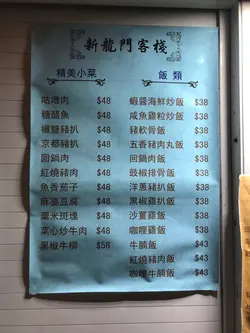 新龍門客棧
精美小菜
飯類
咕嚕肉 $48
糖醋魚 $48
椒鹽豬扒 $48
京都豬扒 $48
回鍋肉 $48
紅燒豬肉 $48
魚香茄子 $48
麻婆豆腐 $48
粟米斑塊 $48
菜心炒牛肉 $48
黑椒牛柳 $58
蝦醬海鮮炒飯 $38
咸魚雞粒炒飯 $38
豬軟骨飯 $38
五香豬肉丸飯 $38
回鍋肉飯 $38
豉椒排骨飯 $38
洋蔥豬扒飯 $38
黑椒雞扒飯 $38
沙薑雞飯 $38
咖喱雞飯 $38
牛腩飯 $43
紅燒豬腩飯 $43
咖喱牛腩飯 $43